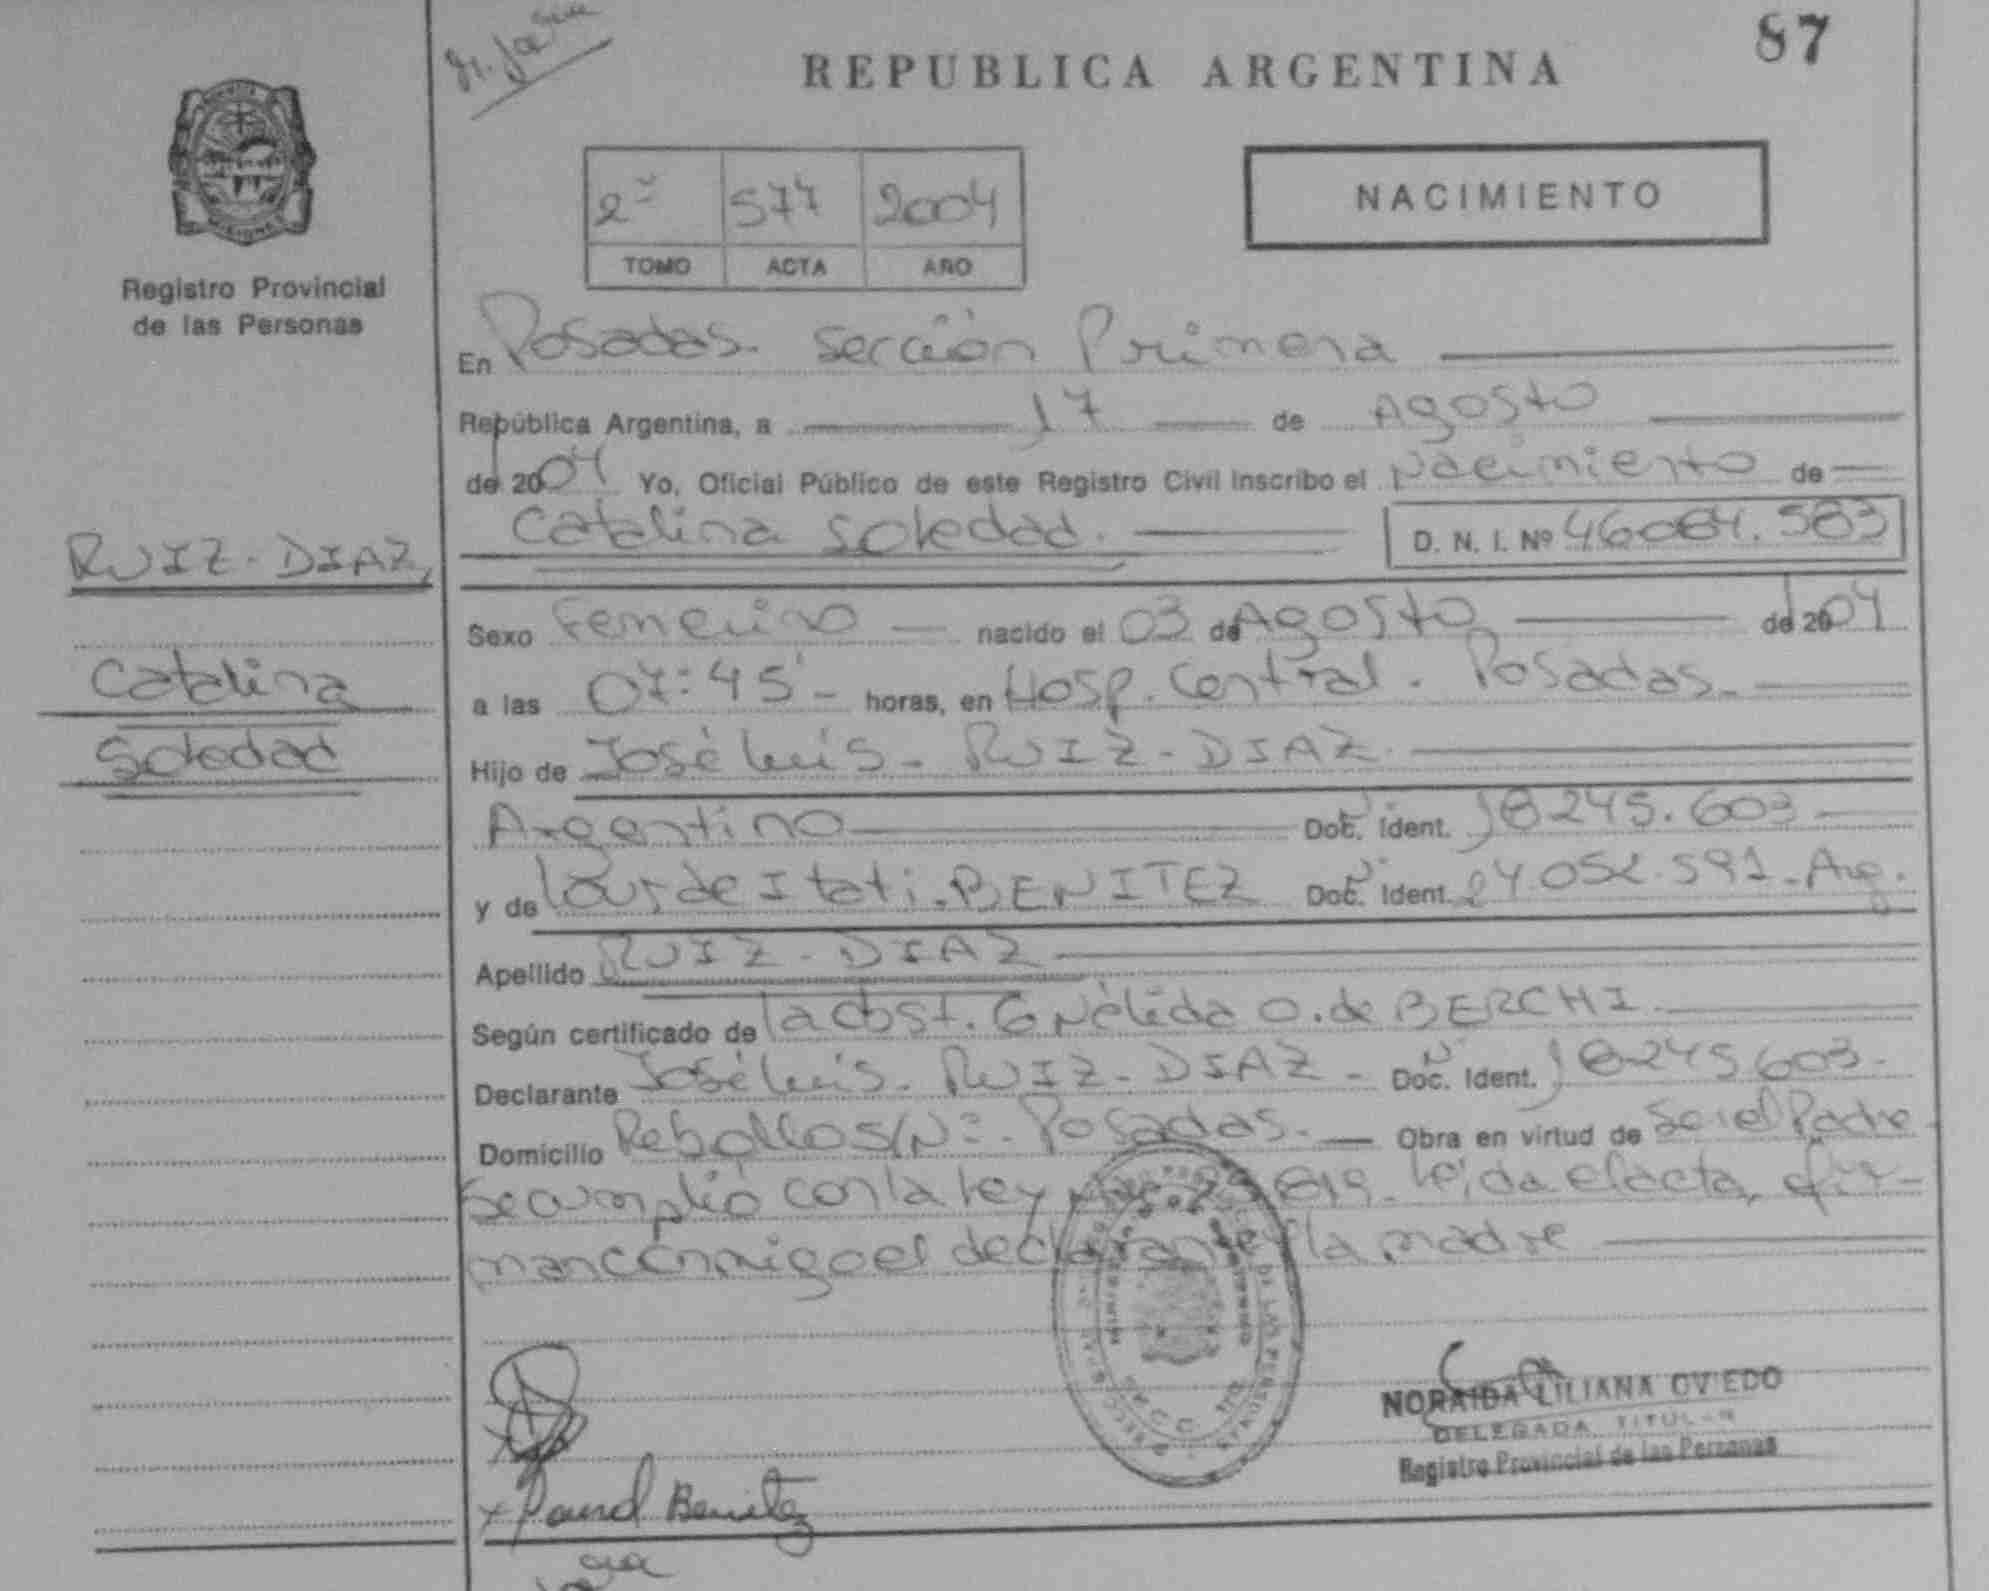 87
REPUBLICA ARGENTINA
NACIMIENTO
2º 577 2004
TOMO ACTA AÑO
Registro Provincial
de las Personas
RUIZ-DIAZ,
Catalina
Soledad
En Posadas. Sección Primera
República Argentina, a 17 de Agosto
de 2004 Yo, Oficial Público de este Registro Civil inscribo el Nacimiento de
Catalina Soledad. D. N. I. Nº 46084.583
Sexo Femenino nacido el 03 de Agosto de 2004
a las 07:45 horas, en Hosp. Central. Posadas.
Hijo de José Luis. RUIZ-DIAZ.
Argentino Doc. Ident. 18245.603
y de Lourde Itati. BENITEZ Doc. Ident. 24.052.591. Arg.
Apellido RUIZ-DIAZ
Según certificado de la obst. G Nélida O. de BERCHI.
Declarante José Luis. RUIZ-DIAZ. Doc. Ident. 18245603.
Domicilio Rebollo S/Nº. Posadas. Obra en virtud de Ser el Padre
Se cumplió con la Ley 819. leída el acta, fir-
man conmigo el declarante y la madre
Benitez
NORAIDA LILIANA OVIEDO
DELEGADA TITULAR
Registro Provincial de las Personas